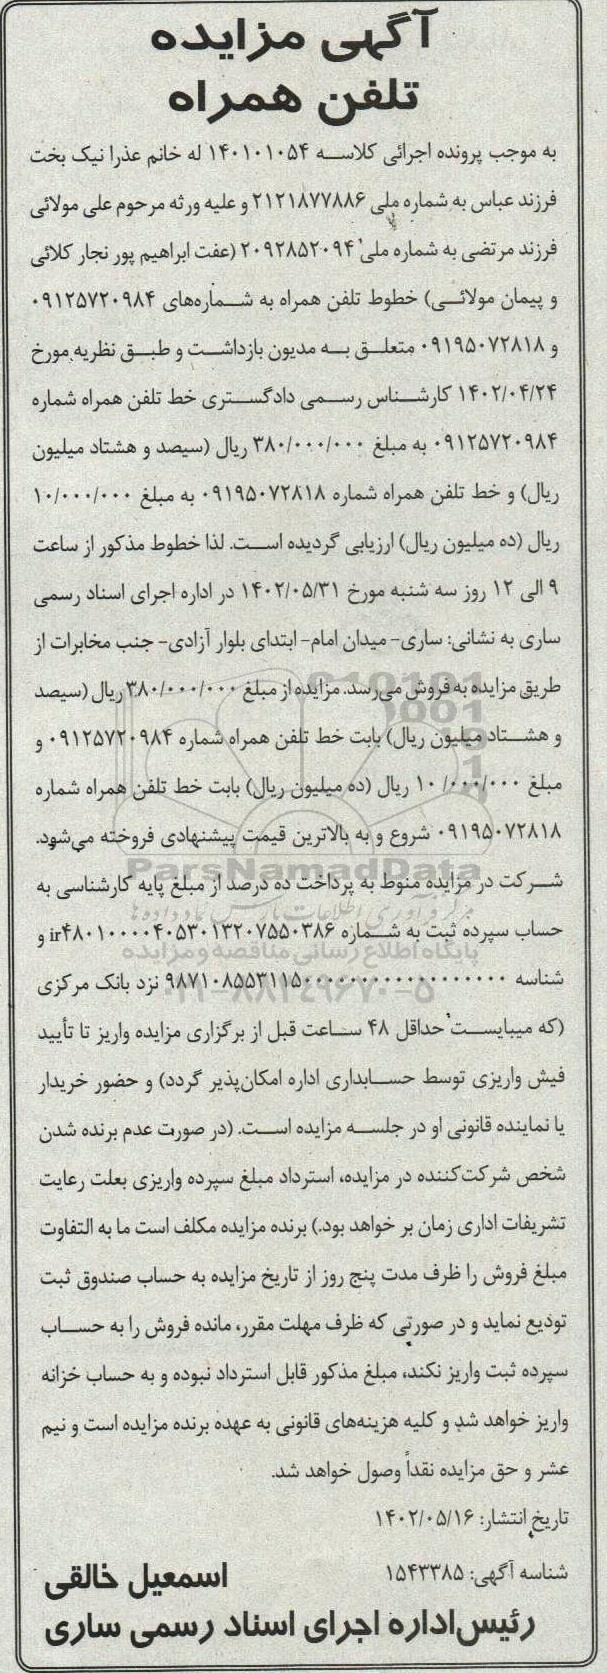 آگهی مزایده
تلفن همراه
به موجب پرونده اجرائی کلاسه ۱۴۰۱۰۱۰۵۴ له خانم عذرا نیک بخت
فرزند عباس به شماره ملی ۲۱۲۱۸۷۷۸۸۶ و علیه ورثه مرحوم علی مولائی
فرزند مرتضی به شماره ملی ۲۰۹۲۸۵۲۰۹۴ (عفت ابراهیم پور نجار کلائی
و پیمان مولائی) خطوط تلفن همراه به شماره‌های ۰۹۱۲۵۷۲۰۹۸۴
و ۰۹۱۹۵۰۷۲۸۱۸ متعلق به مدیون بازداشت و طبق نظریه مورخ
۱۴۰۲/۰۴/۲۴ کارشناس رسمی دادگستری خط تلفن همراه شماره
۰۹۱۲۵۷۲۰۹۸۴ به مبلغ ۳۸۰/۰۰۰/۰۰۰ ریال (سیصد و هشتاد میلیون
ریال) و خط تلفن همراه شماره ۰۹۱۹۵۰۷۲۸۱۸ به مبلغ ۱۰/۰۰۰/۰۰۰
ریال (ده میلیون ریال) ارزیابی گردیده است. لذا خطوط مذکور از ساعت
۹ الی ۱۲ روز سه شنبه مورخ ۱۴۰۲/۰۵/۳۱ در اداره اجرای اسناد رسمی
ساری به نشانی: ساری- میدان امام- ابتدای بلوار آزادی- جنب مخابرات از
طریق مزایده به فروش می‌رسد. مزایده از مبلغ ۳۸۰/۰۰۰/۰۰۰ ریال (سیصد
و هشتاد میلیون ریال) بابت خط تلفن همراه شماره ۰۹۱۲۵۷۲۰۹۸۴ و
مبلغ ۱۰/۰۰۰/۰۰۰ ریال (ده میلیون ریال) بابت خط تلفن همراه شماره
۰۹۱۹۵۰۷۲۸۱۸ شروع و به بالاترین قیمت پیشنهادی فروخته می‌شود.
ParsNamadData
شرکت در مزایده منوط به پرداخت ده درصد از مبلغ پایه کارشناسی به
مرکز فرآوری اطلاعات پارس نماد داده ها
حساب سپرده ثبت به شماره ir۴۸۰۱۰۰۰۰۴۰۵۳۰۱۳۲۰۷۵۵۰۳۸۶ و
پایگاه اطلاع رسانی مناقصه و مزایده
شناسه ۹۸۷۱۰۸۵۵۳۱۱۵۰۰۰۰۰۰۰۰۰۰۰۰۰۰۰۰۰۰ نزد بانک مرکزی
۰۲۱-۸۸۳۴۹۶۷۰-۵
(که میبایست حداقل ۴۸ ساعت قبل از برگزاری مزایده واریز تا تأیید
فیش واریزی توسط حسابداری اداره امکان‌پذیر گردد) و حضور خریدار
یا نماینده قانونی او در جلسه مزایده است. (در صورت عدم برنده شدن
شخص شرکت‌کننده در مزایده، استرداد مبلغ سپرده واریزی بعلت رعایت
تشریفات اداری زمان بر خواهد بود.) برنده مزایده مکلف است ما به التفاوت
مبلغ فروش را ظرف مدت پنج روز از تاریخ مزایده به حساب صندوق ثبت
تودیع نماید و در صورتی که ظرف مهلت مقرر، مانده فروش را به حساب
سپرده ثبت واریز نکند، مبلغ مذکور قابل استرداد نبوده و به حساب خزانه
واریز خواهد شد و کلیه هزینه‌های قانونی به عهده برنده مزایده است و نیم
عشر و حق مزایده نقداً وصول خواهد شد.
تاریخ انتشار: ۱۴۰۲/۰۵/۱۶
شناسه آگهی: ۱۵۴۳۳۸۵
اسمعیل خالقی
رئیس اداره اجرای اسناد رسمی ساری